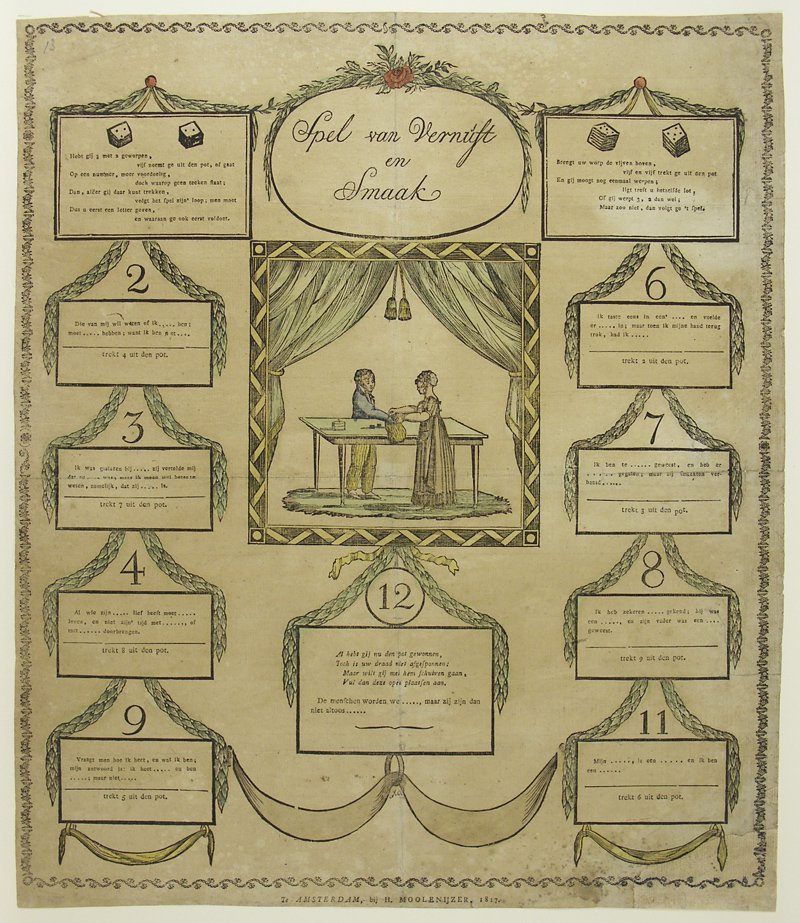 13
Spel van Vernuft
en
Smaak
Hebt gij 3 met 2 geworpen,
vijf neemt ge uit den pot, of gaat
Op een nummer, meer voordeelig,
doch waarop geen teeken staat;
Dan, alëer gij daar kunt trekken,
volgt het spel zijn' loop; men moet
Dus u eerst een letter geven,
en waaraan ge ook eerst voldoet.
Brengt uw worp de vijven boven,
vijf en vijf trekt ge uit den pot
En gij moogt nog eenmaal werpen;
ligt treft u hetzelfde lot;
Of gij werpt 3, 2 dan wel;
Maar zoo niet, dan volgt ge 't spel.
2
Die van mij wil weten of ik ..... ben;
moet ..... hebben; want ik ben n et ....
trekt 4 uit den pot.
6
Ik taste eens in een' .... en voelde
er ..... in; maar toen ik mijne hand terug
trok, had ik .....
trekt 2 uit den pot.
3
Ik was gezeten bij ....., zij vertelde mij
dat zij ..... was; maar ik meen wel beter te
weten, namelijk, dat zij ..... is.
trekt 7 uit den pot.
7
Ik ben te ..... geweest, en heb er
....... gegeten; maar zij smaakten ver-
brand......
trekt 3 uit den pot.
4
Al wie zijn ..... lief heeft moet .....
leven, en niet zijn' tijd met ......, of
met ...... doorbrengen.
trekt 8 uit den pot.
8
Ik heb zekeren ..... gekend; hij was
een ....., en zijn vader was een ....
geweest.
trekt 9 uit den pot.
12
Al hebt gij nu den pot gewonnen,
Toch is uw draad niet afgesponnen;
Maar wilt gij met hem schuiven gaan,
Vul dan deze open plaatsen aan.
De menschen worden we ....., maar zij zijn dan
niet altoos......
9
Vraagt men hoe ik heet, en wat ik ben;
mijn antwoord is: ik heet ..... en ben
.....; maar niet.....
trekt 5 uit den pot.
11
Mijn ......, is een ...... en ik ben
een ......
trekt 6 uit den pot.
Te AMSTERDAM, bij H. MOOLENIJZER, 1817.